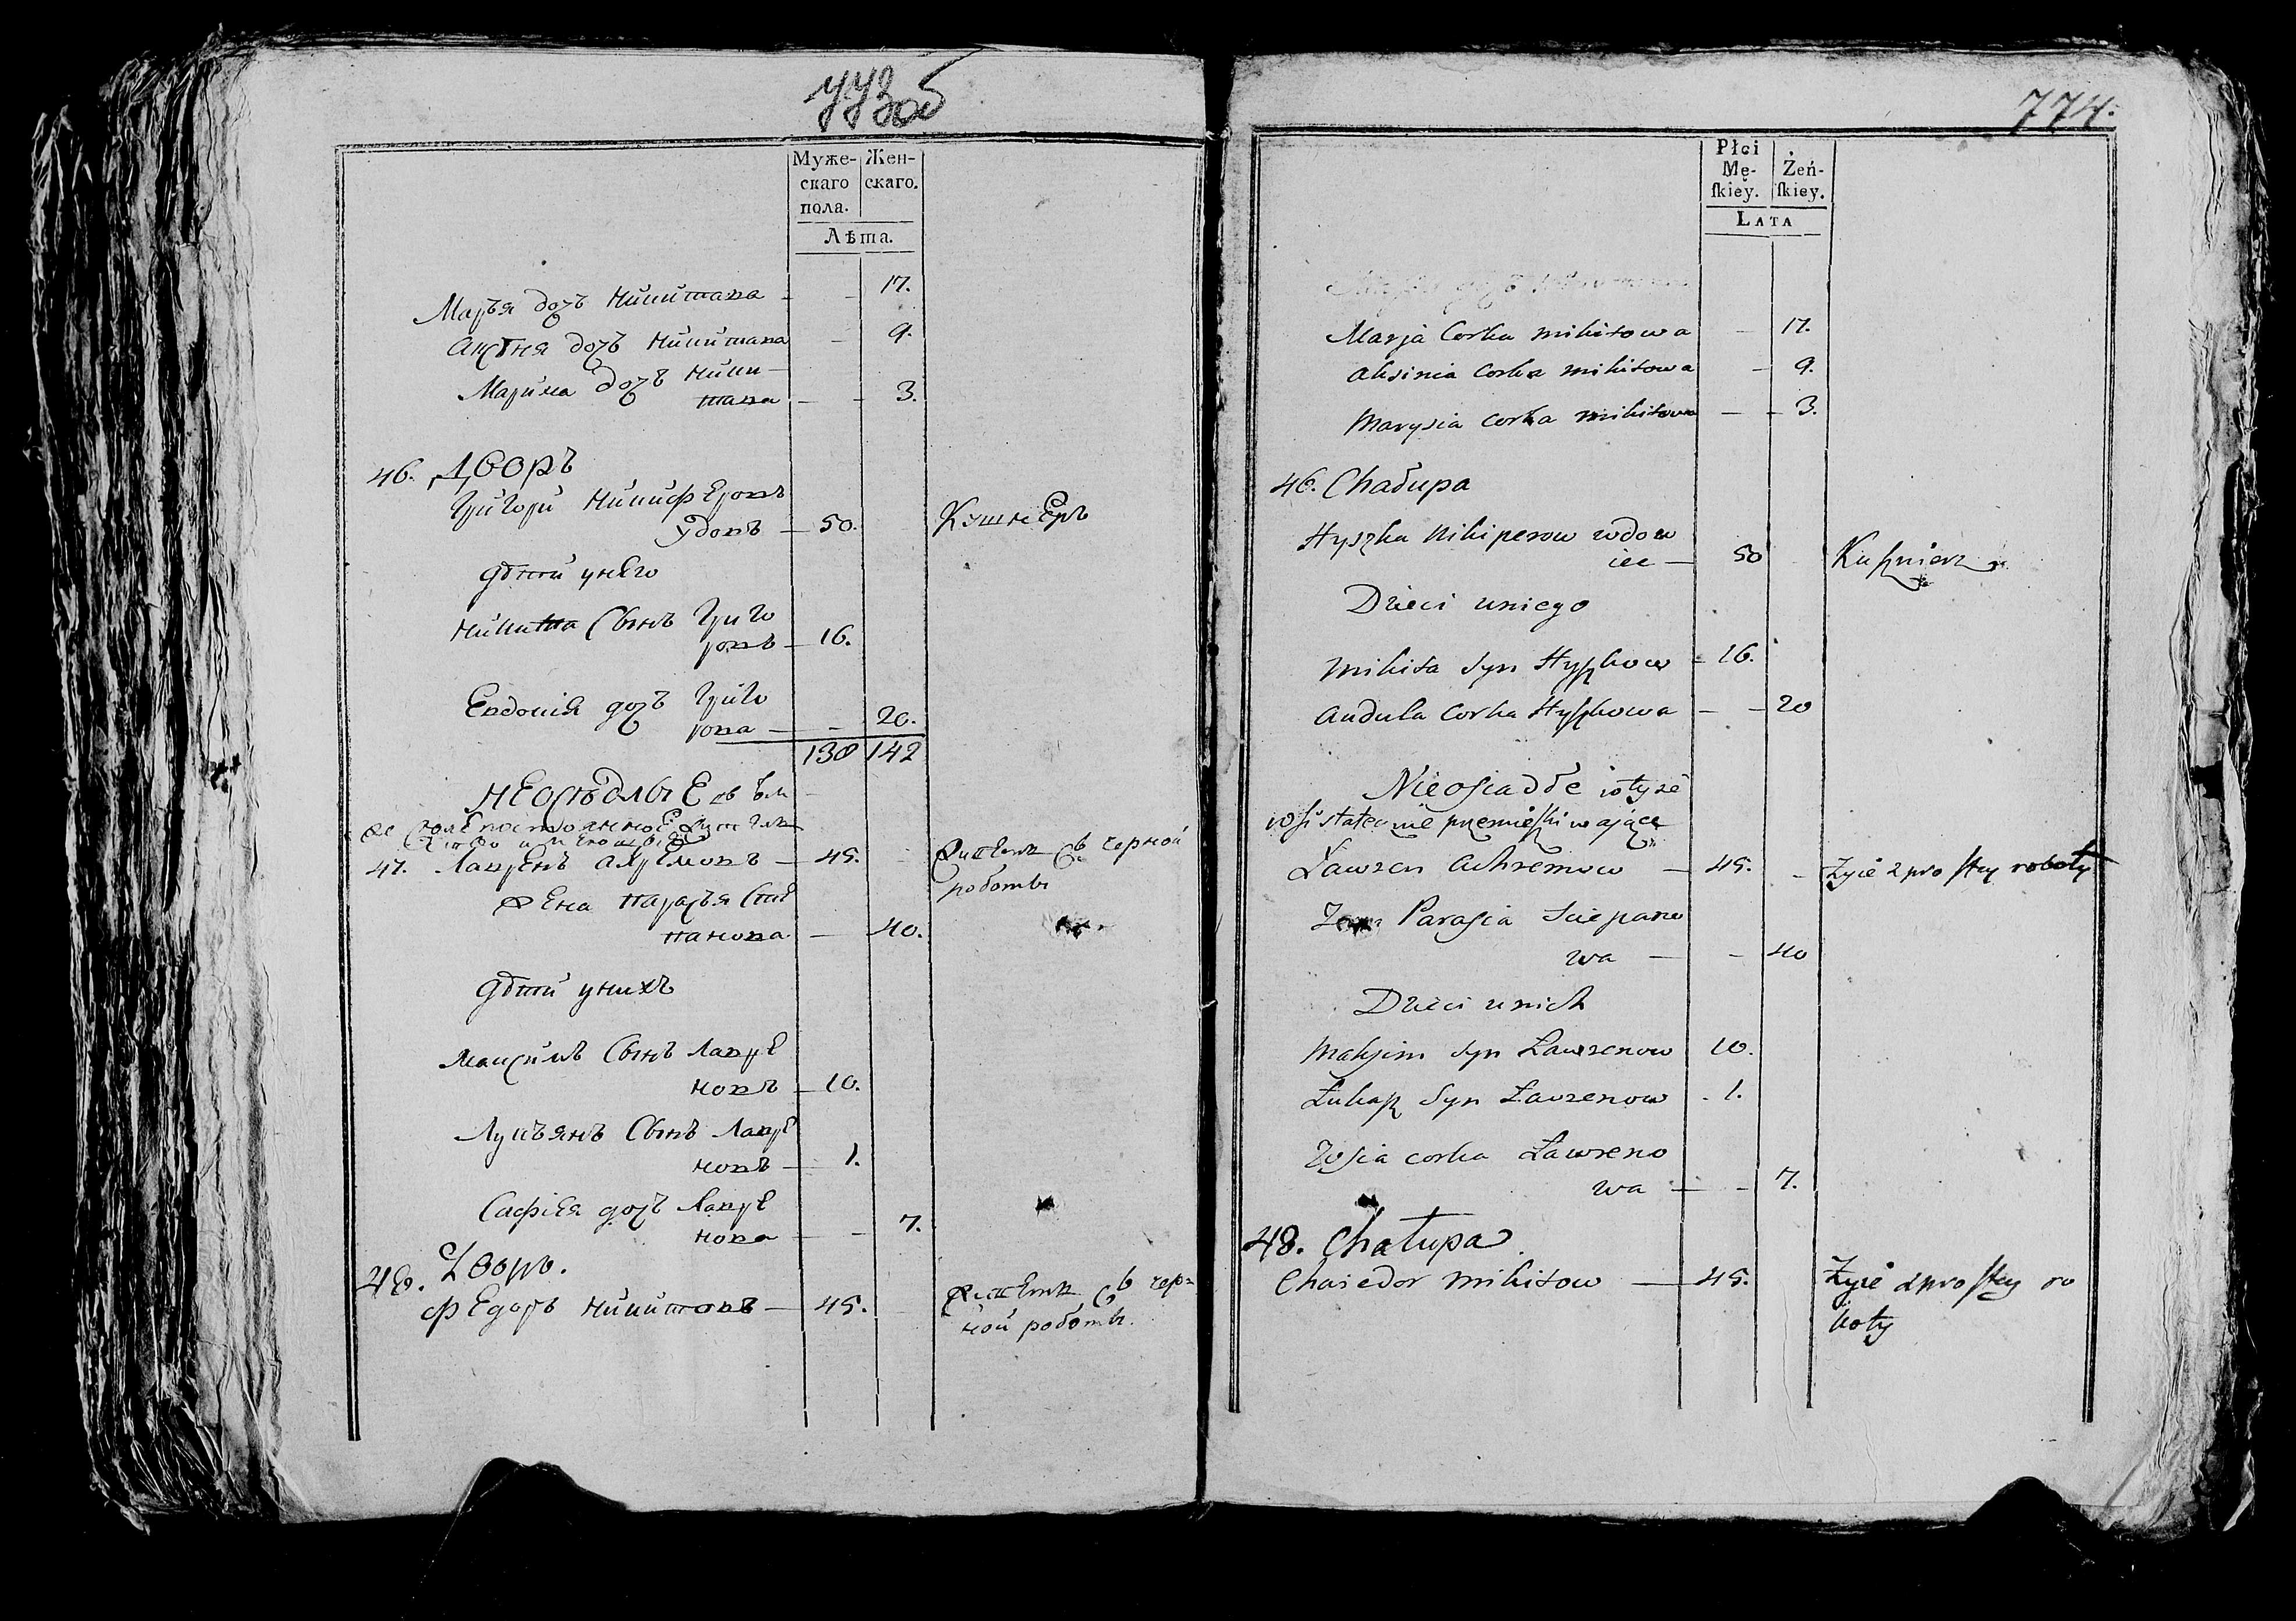 773об
Муже- Жен-
скаго скаго.
пола.
Лѣта.
Марья дочъ Микитава - - 17.
Аксѣня дочъ Микитава - 9.
Марина дочъ Мики-
тава - - 3.
46. Дворъ
Григори Микифоровъ
Удовъ - 50. Кушнеръ
дѣти унего
Микита Сынъ Григо
ровъ - 16.
Евдокія дочъ Григо
рова - - 20.
138 142
Неосѣдлые
47. Лавренъ Ахремовъ - 45. Живетъ съ черной
работы
Жена Парасья Сте
панова - 40.
дѣти унихъ
Максимъ Сынъ Лавре
новъ - 10.
Лукъянъ Сынъ Лавре
новъ - 1.
Сафія дочъ Лавре
нова - - 7.
48. Дворъ.
Федоръ Микитовъ - 45. Живетъ съ чер=
ной работы.
774.
Płci
Mę- Żeń-
ſkiey. ſkiey.
LATA
Marja Corka Mikitowa - 17.
Aksinia Corka Mikitowa - 9.
Marysia Corka Mikitowa - - 3.
46. Chałupa
Hyszka Nikiperow wdow
iec - 50 Kuſznierz
Dzieci uniego
Mikita Syn Hyſzkow - 16.
Audula Corka Hyſzkowa - - 20
Nieoſiadłe
Ławren Achremow - 45. - Żyie z proſtey roboty
Żona Paraſia Sciepano
wa - - 40
Dzieci unich
Makſim Syn Ławrenow 10.
Łukaſz Syn Ławrenow - 1.
Zoſia corka Ławreno
wa - - 7.
48. Chałupa
Chwiedor Mikitow - 45. Żyie z proſtey ro
boty